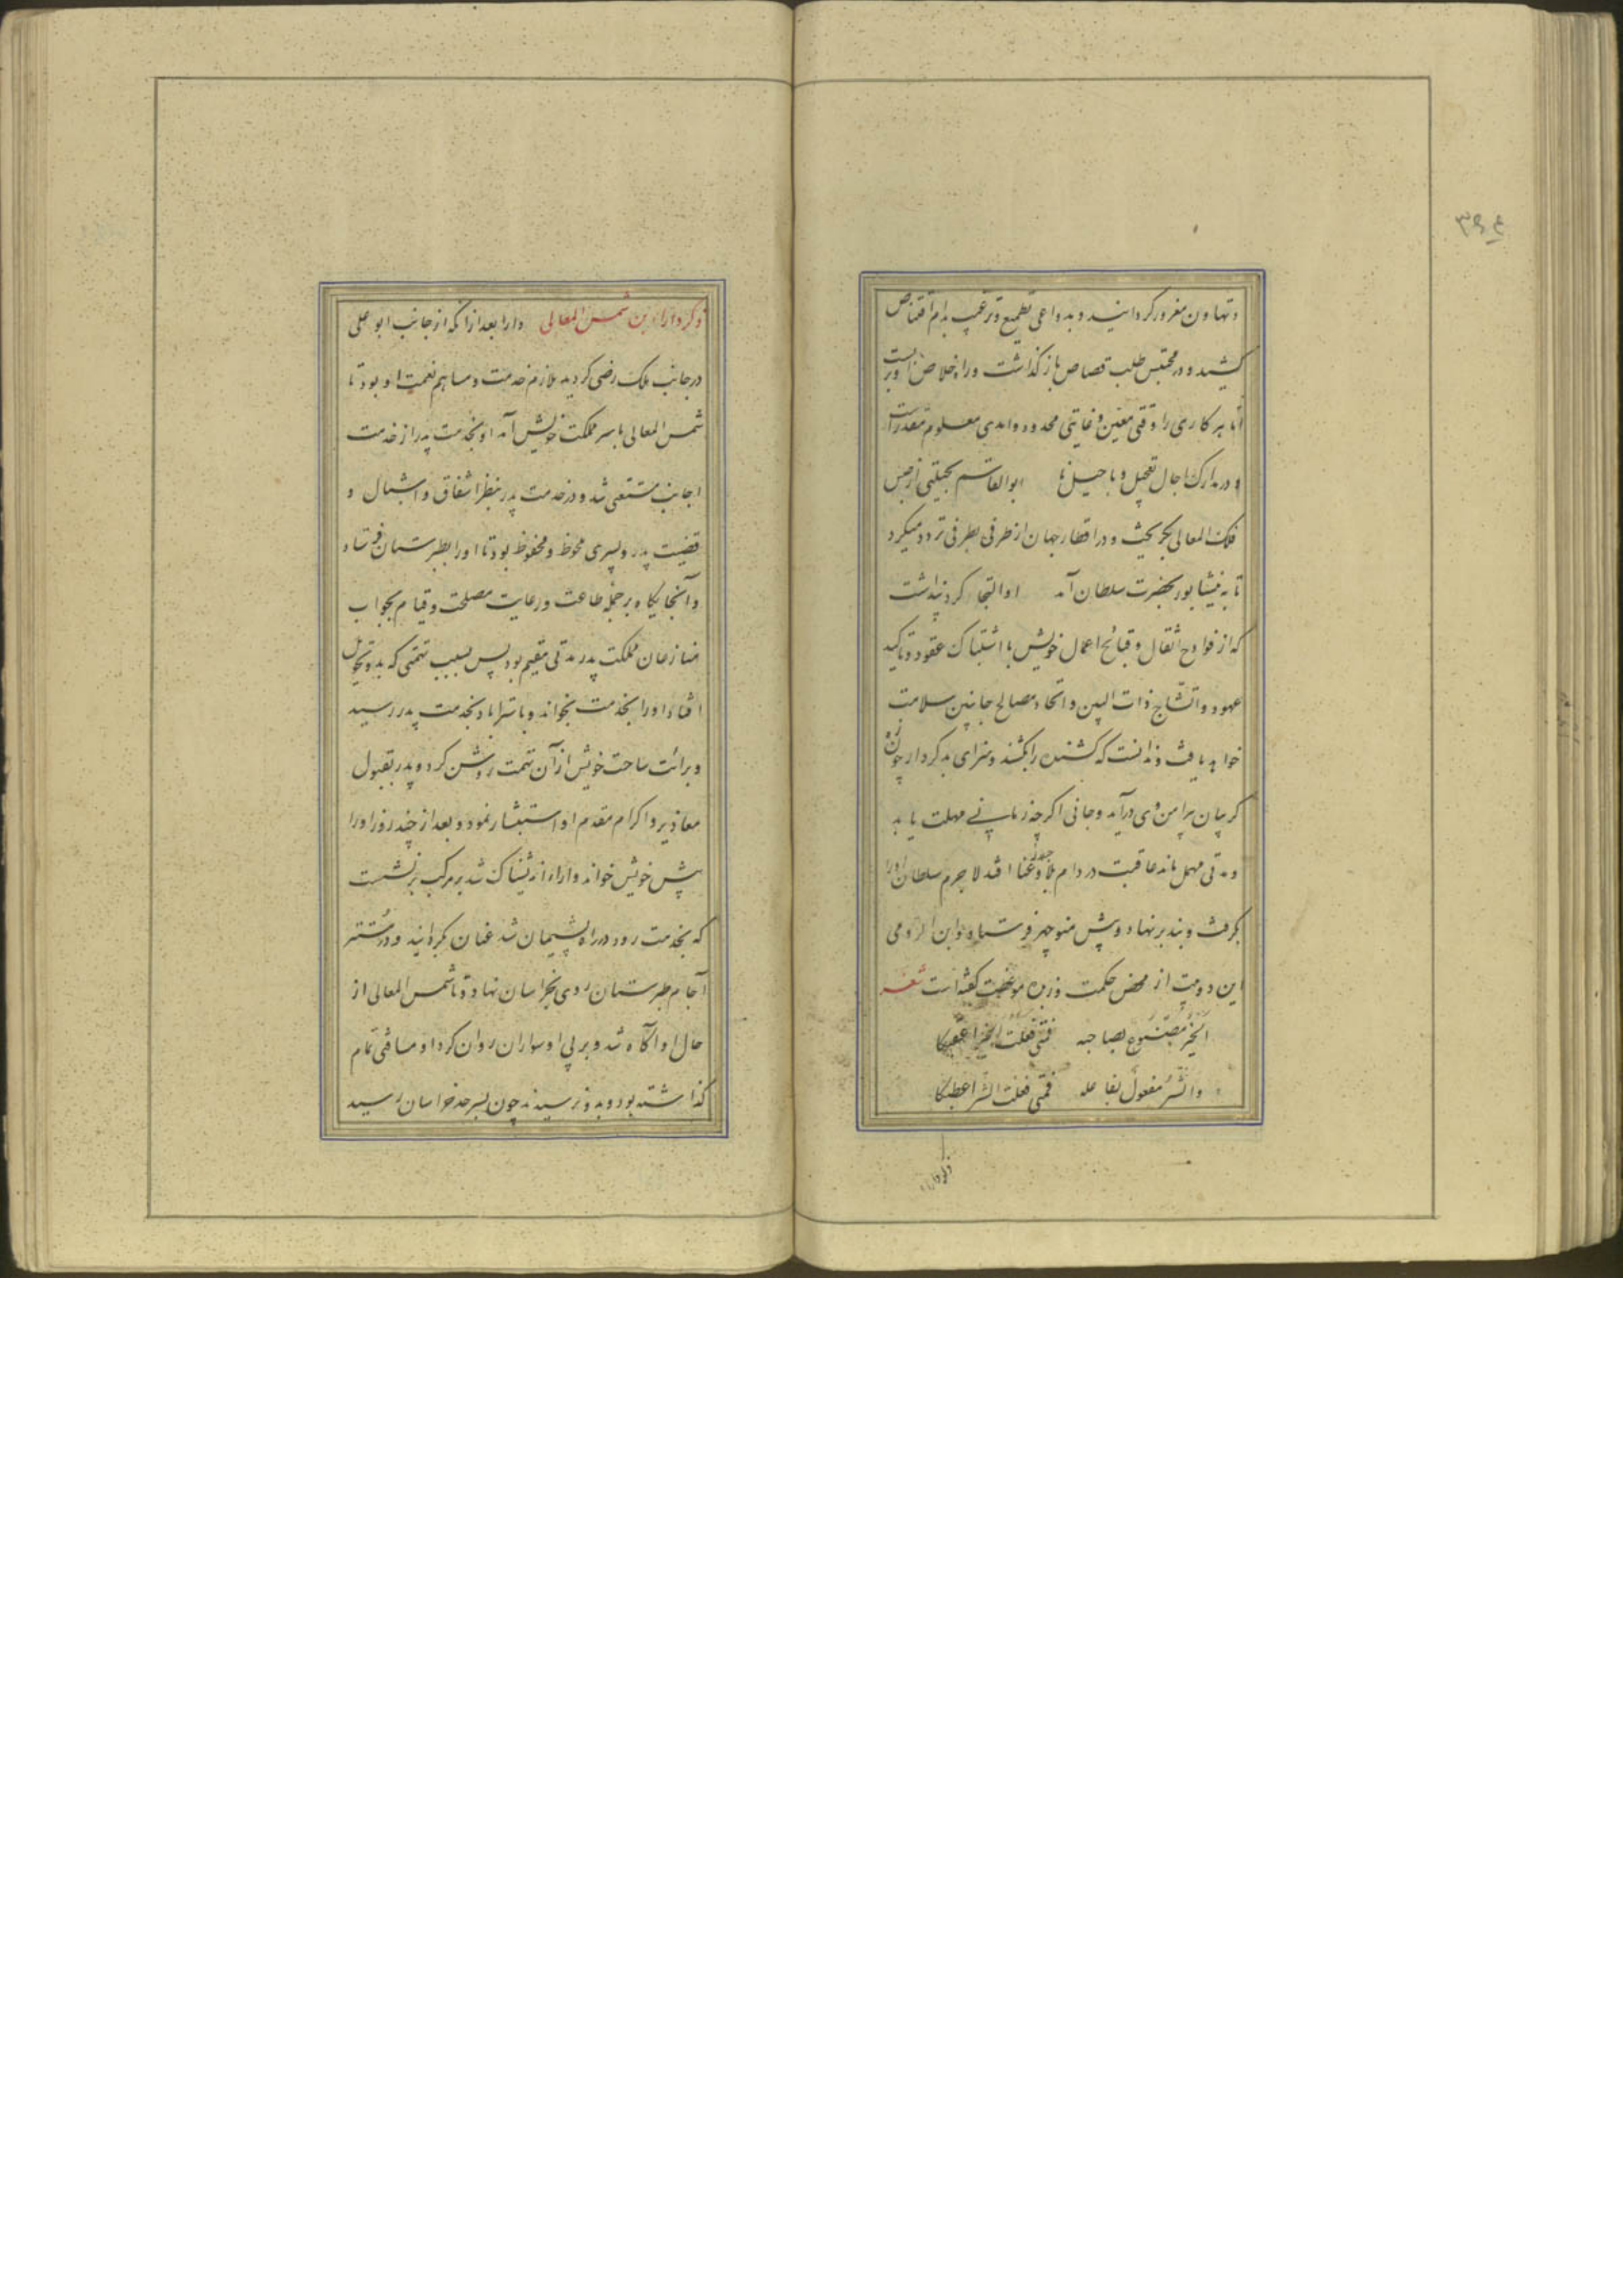 ۳۹۴
و تهاون مغرور گردانید و بدواعی تطمیع و ترغیب بدام اقتناص
کشید و در محتبس طلب قصاص بازگذاشت و راه خلاص او بربست
اما هر کاری را وقتی معین و غایتی محدود و امدی معلوم مقدرست
و در مدارک اجال تعجیل و تاجیل نه ابوالقاسم بحیلتی از حبس
فلک المعالی بگریخت و در اقطار جهان از طرفی بطرفی تردد میکرد
تا به نیشابور بحضرت سلطان آمد او التجا کرد پنداشت
که از فوادح اثقال و قبائح اعمال خویش با اشتباک عقود و تاکید
عهود و اتشاج ذات البین و اتحاد مصالح جانبین سلامت
خواهد یافت و ندانست که کشنده را بکشند و سزای بدکردار چون زه
گریبان پیرامن وی درآید و جانی اگر چند زمانی مهلت یابد
و مدتی مهمل ماند عاقبت در دام بلا و عنا افتد لاجرم سلطان اورا
بگرفت و بند برنهاد و پیش منوچهر فرستاد و ابن الرومی
این دو بیت از محض حکمت و زبده موعظت گفته است شعر
الخیر مصنوع بصاحبه فمتی فعلت الخیر اعقبکا
والشر مفعول بفاعله فمتی فعلت الشر اعطبکا
ذکر دارا
ذکر دارا بن شمس المعالی دارا بعد از آنکه از جانب ابو علی
در جانب ملک رضی گردید ملازم خدمت و مساهم نعمت او بود تا
شمس المعالی باسر مملکت خویش آمد او بخدمت پدر از خدمت
اجانب مستغنی شد و در خدمت پدر بنظر اشفاق و اشبال و
قضیت پدر و پسری محوظ و محفوظ بود تا او را بطبرستان فرستاد
و آنجایگاه بر جمله طاعت و رعایت مصلحت و قیام بجواب
منازعان مملکت پدر مدتی مقیم بود پس بسبب تهمتی که بدو تحویل
افتاد او را بخدمت بخواند و باستراباد بخدمت پدر رسید
و برائت ساحت خویش از آن تهمت روشن کرد و پدر بقبول
معاذیر و اکرام مقدم او استبشار نمود و بعد از چند روز او را
پیش خویش خواند و دارا اندیشناک شد بر مرکب برنشست
که بخدمت رود در راه پشیمان شد عنان بگردانید و در مستتر
آجام طبرستان روی بخراسان نهاد و تا شمس المعالی از
حال او آگاه شد و بر پی او سواران روان کرد او مسافتی تمام
گذاشته بود و بدو نرسیدند چون بسرحد خراسان رسید